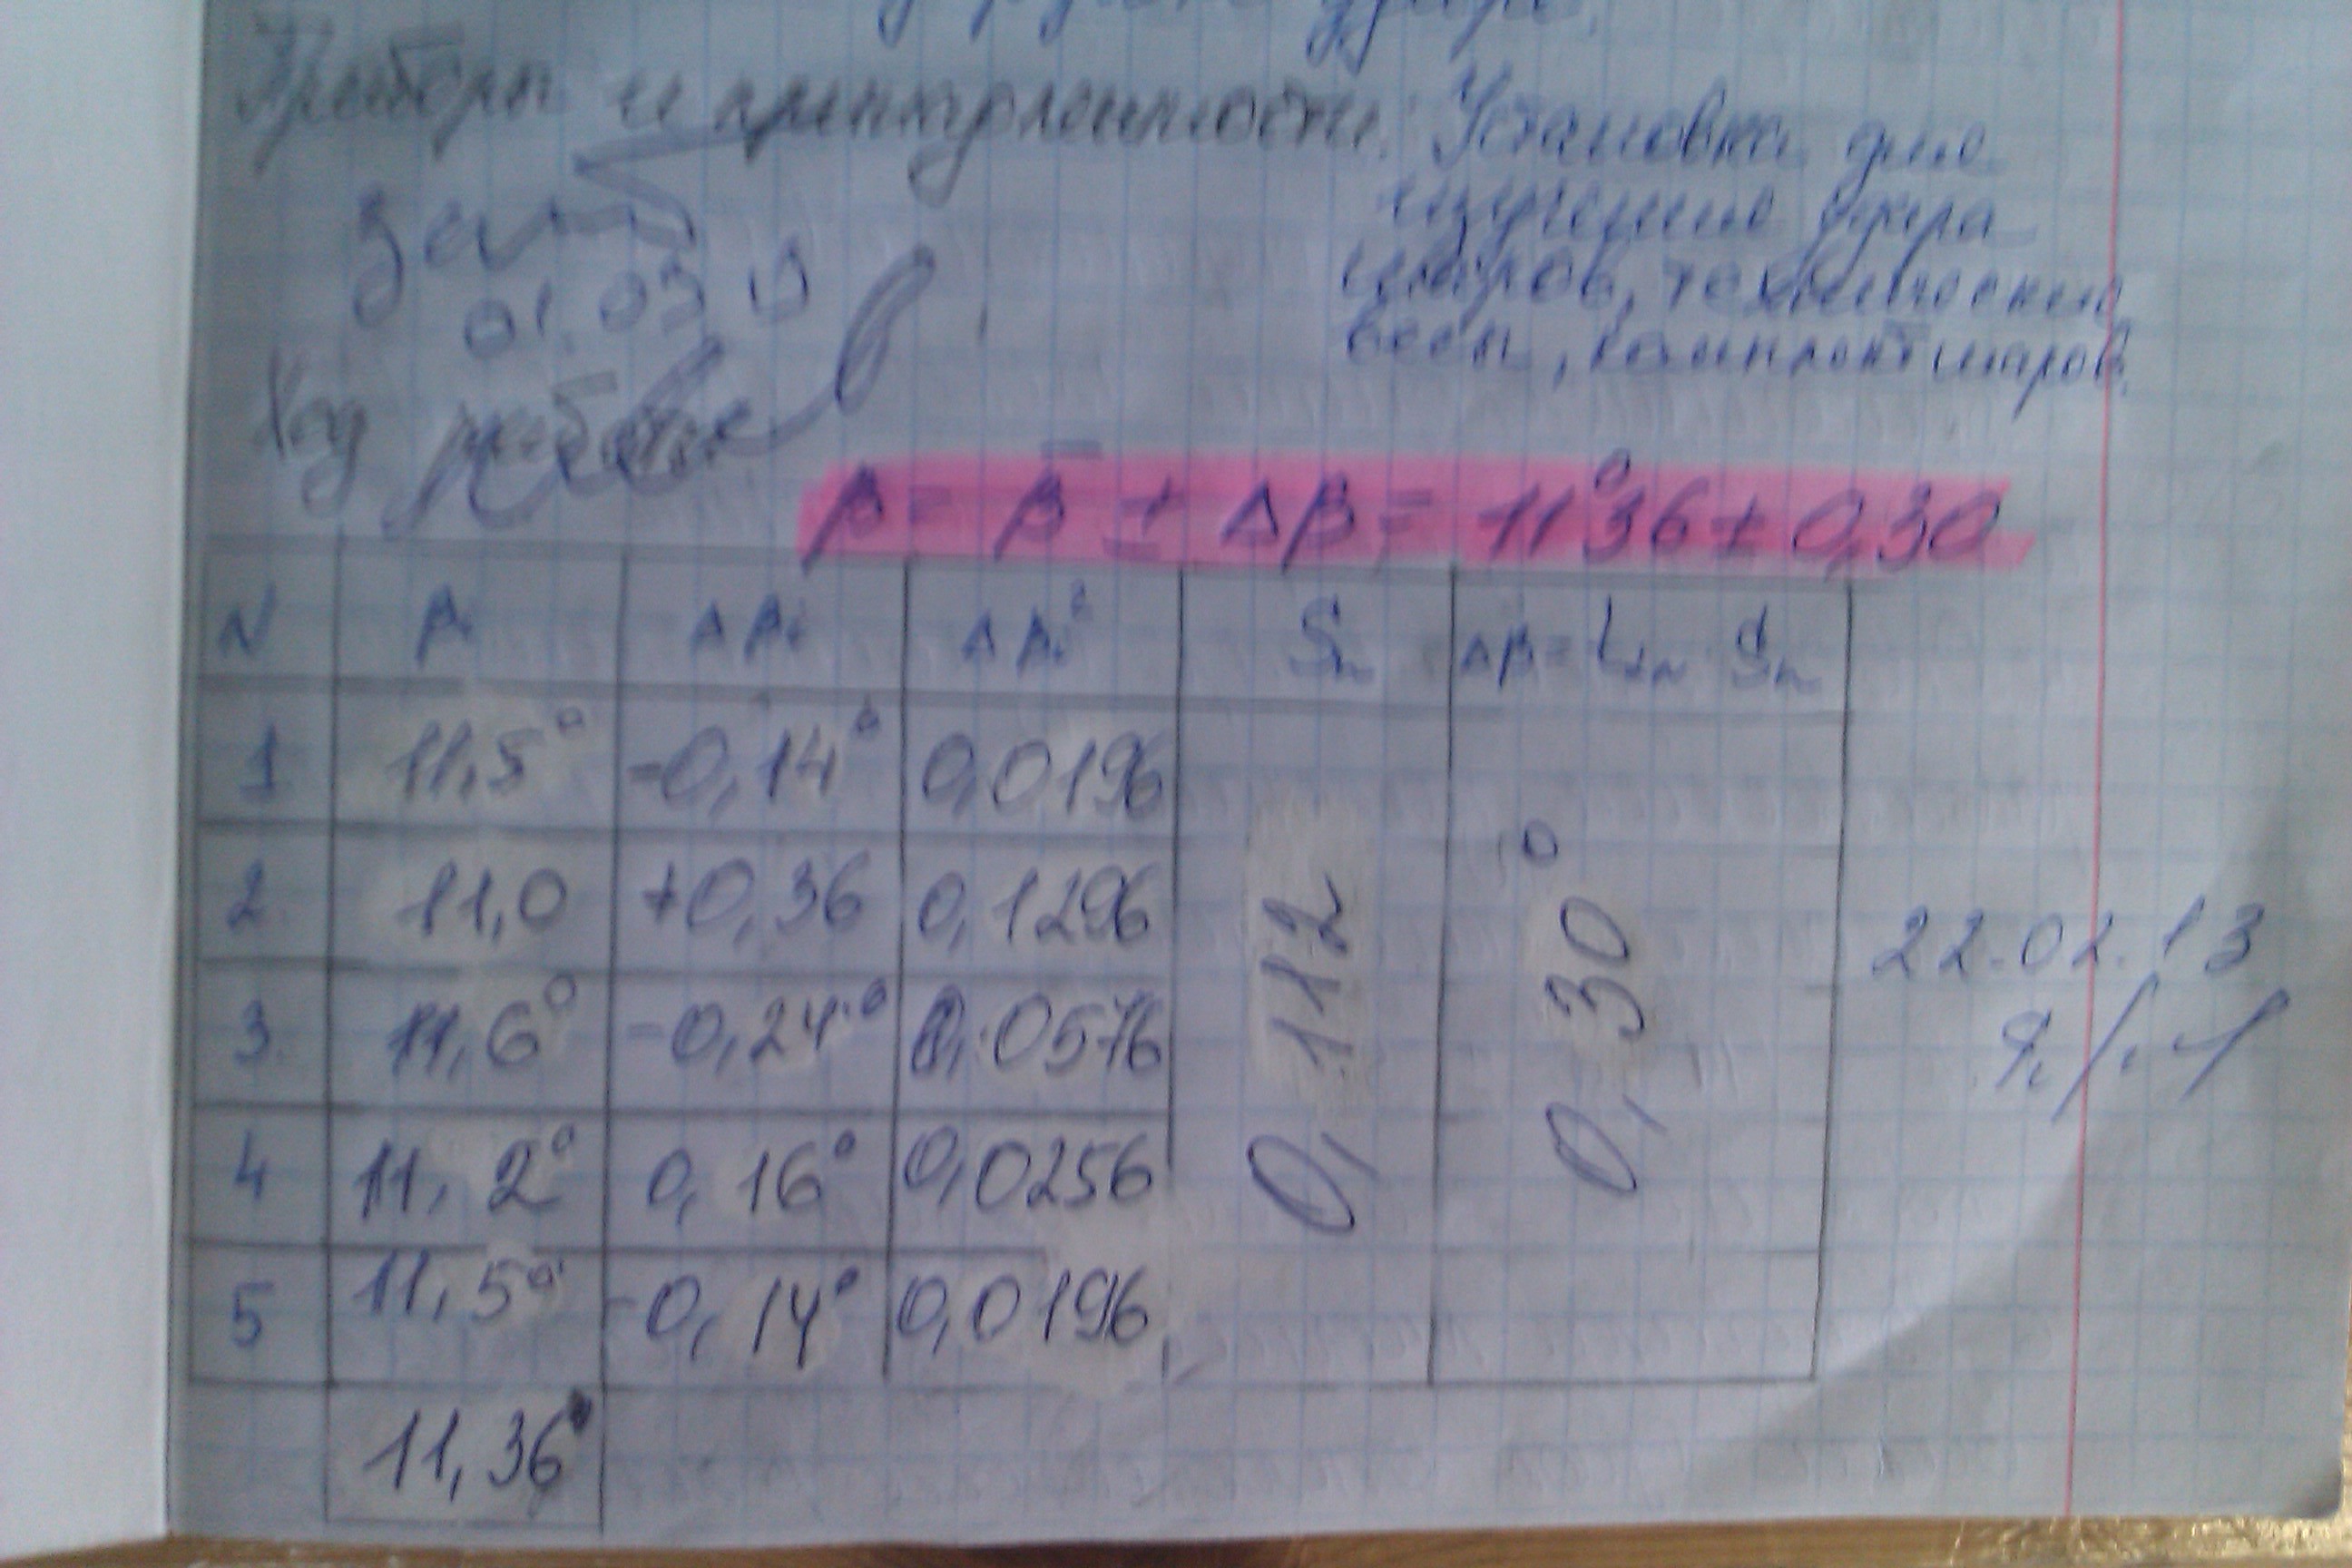 Приборы и принадлежности: Установка для
изучения удара
шаров, технические
весы, комплект шаров.
01.03.13
Ход работы
β = β̅ ± Δβ = 11°36 ± 0,30
N βi Δβi Δβi² Sn Δβ = tαn Sn
1 11,5° -0,14° 0,0196
2. 11,0 +0,36 0,1296
3. 11,6° -0,24° 0,0576
4 11,2° 0,16° 0,0256
5 11,5° -0,14° 0,0196
0,112
0,30°
11,36°
22.02.13